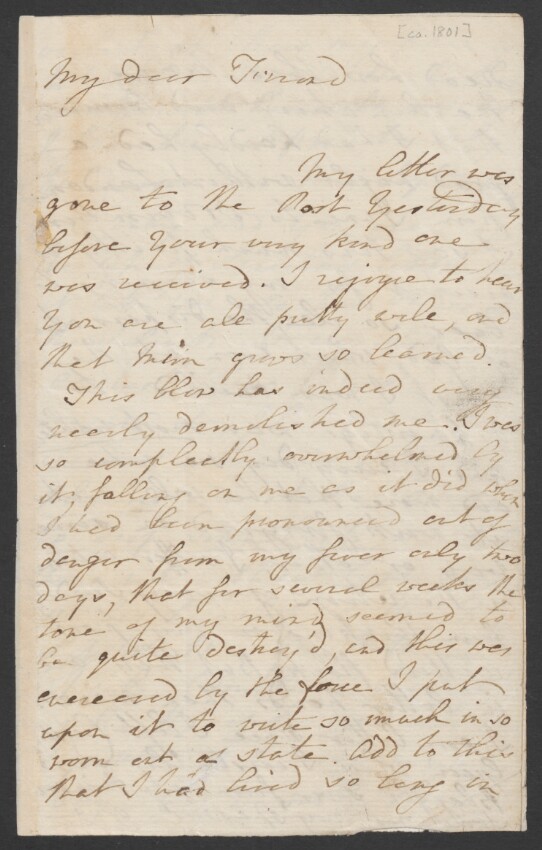 [ca. 1801]
My dear Friend
My letter was
gone to the Post Yesterday
before Your very kind one
was received. I rejoyce to hear
You are ale pretty wele, and
that Mim grows so learned.
This blow has indeed very
nearly demolished me. I was
so compleatly overwhelmed by
it, falling on me as it did when
I had been pronounced out of
danger from my fever only two
days, that for several weeks the
tone of my mind seemed to
be quite destroy'd, and this was
by the force I put
upon it to write so much in so
worn out a state. Add to this
that I had lived so long in